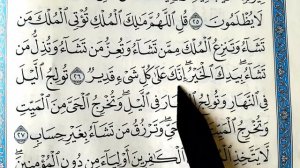 لَا يُظْلَمُونَ ٢٥ قُلِ ٱللَّهُمَّ مَٰلِكَ ٱلْمُلْكِ تُؤْتِى ٱلْمُلْكَ مَن
تَشَآءُ وَتَنزِعُ ٱلْمُلْكَ مِمَّن تَشَآءُ وَتُعِزُّ مَن تَشَآءُ وَتُذِلُّ مَن
تَشَآءُ بِيَدِكَ ٱلْخَيْرُ إِنَّكَ عَلَىٰ كُلِّ شَىْءٍ قَدِيرٌ ٢٦ تُولِجُ ٱلَّيْلَ
فِى ٱلنَّهَارِ وَتُولِجُ ٱلنَّهَارَ فِى ٱلَّيْلِ وَتُخْرِجُ ٱلْحَىَّ مِنَ ٱلْمَيِّتِ
وَتُخْرِجُ ٱلْمَيِّتَ ٱلْحَىِّ وَتَرْزُقُ مَن تَشَآءُ بِغَيْرِ حِسَابٍ ٢٧
لَّا يَتَّخِذِ ٱلْكَٰفِرِينَ أَوْلِيَآءَ مِن دُونِ ٱلْمُؤْمِنِينَ